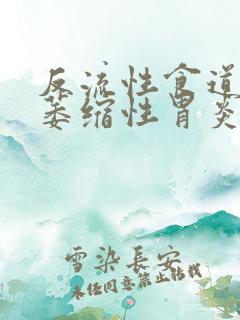 反流性食道
萎缩性胃炎
雪染长安
未经同意禁止转载